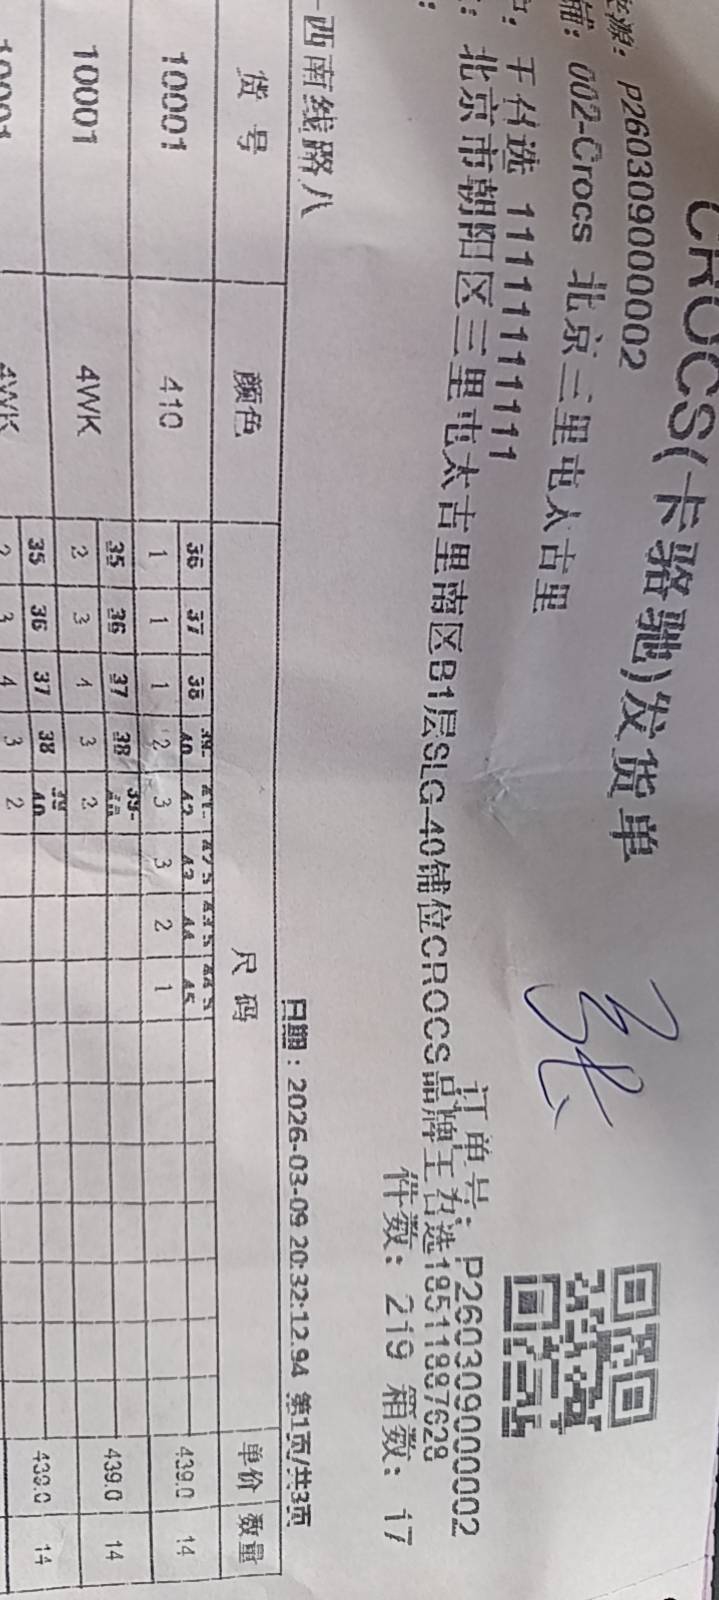 CROCS(卡骆驰)发货单
来源: P260309000002
订单号: P260309000002
铺: 002-Crocs 北京三里屯太古里
件数: 219 箱数: 17
选 11111111111
: 北京市朝阳区三里屯太古里南区B1层SLG-40铺位CROCS品牌王石选18511887628
西南线路八
日期: 2026-03-09 20:32:12.94 第1页/共3页
货号 颜色 尺码 单价 数量
36 37 38 39-40 41-42 42.5-43 43.5-44 44.5-45
10001 410 1 1 1 2 3 3 2 1 439.0 14
35 36 37 38 39-40
10001 4WK 2 3 4 3 2 439.0 14
35 36 37 38 39-40
10001 4WK 2 3 4 3 2 439.0 14
张